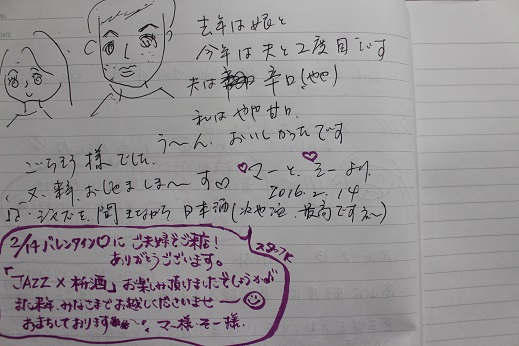 去年は娘と
今年は夫と2度目です
夫は 辛口(やや)
私はやや甘口
う～ん、おいしかったです
ごちそう様でした。
又、来おじゃましま～す♡
♡マーと、♡そーより
2016.2.14
ジャズを聞きながら 日本酒( 最高ですネ～)
2/14バレンタイン♡にご夫婦でご来店!
ありがとうございます。
スタッフK
「JAZZ×梅酒」お楽しみ頂けましたでしょうか
また来年みなさまでお越しくださいませ
おまちしております マー様、そー様